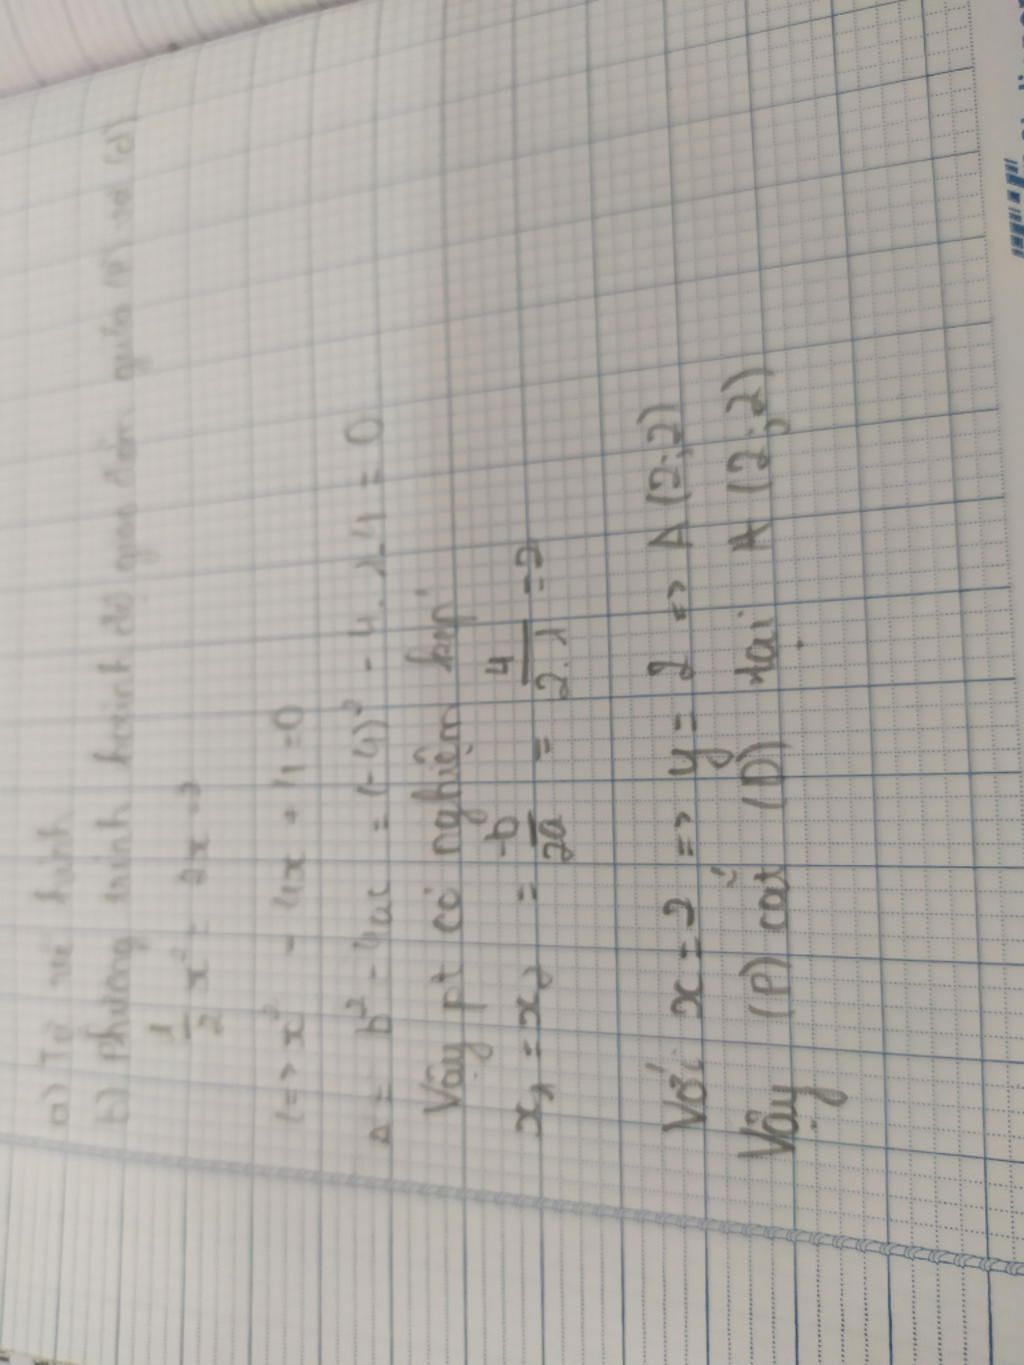 a) Tự vẽ hình
b) Phương trình hoành độ giao điểm giữa (P) và (d)
1/2 x² = 2x - 2
<=> x² - 4x + 4 = 0
Δ = b² - 4ac = (-4)² - 4.1.4 = 0
Vậy pt có nghiệm kép
x₁ = x₂ = -b/2a = 4/2.1 = 2
Với x = 2 => y = 2 => A (2;2)
Vậy (P) cắt (D) tại A (2;2)